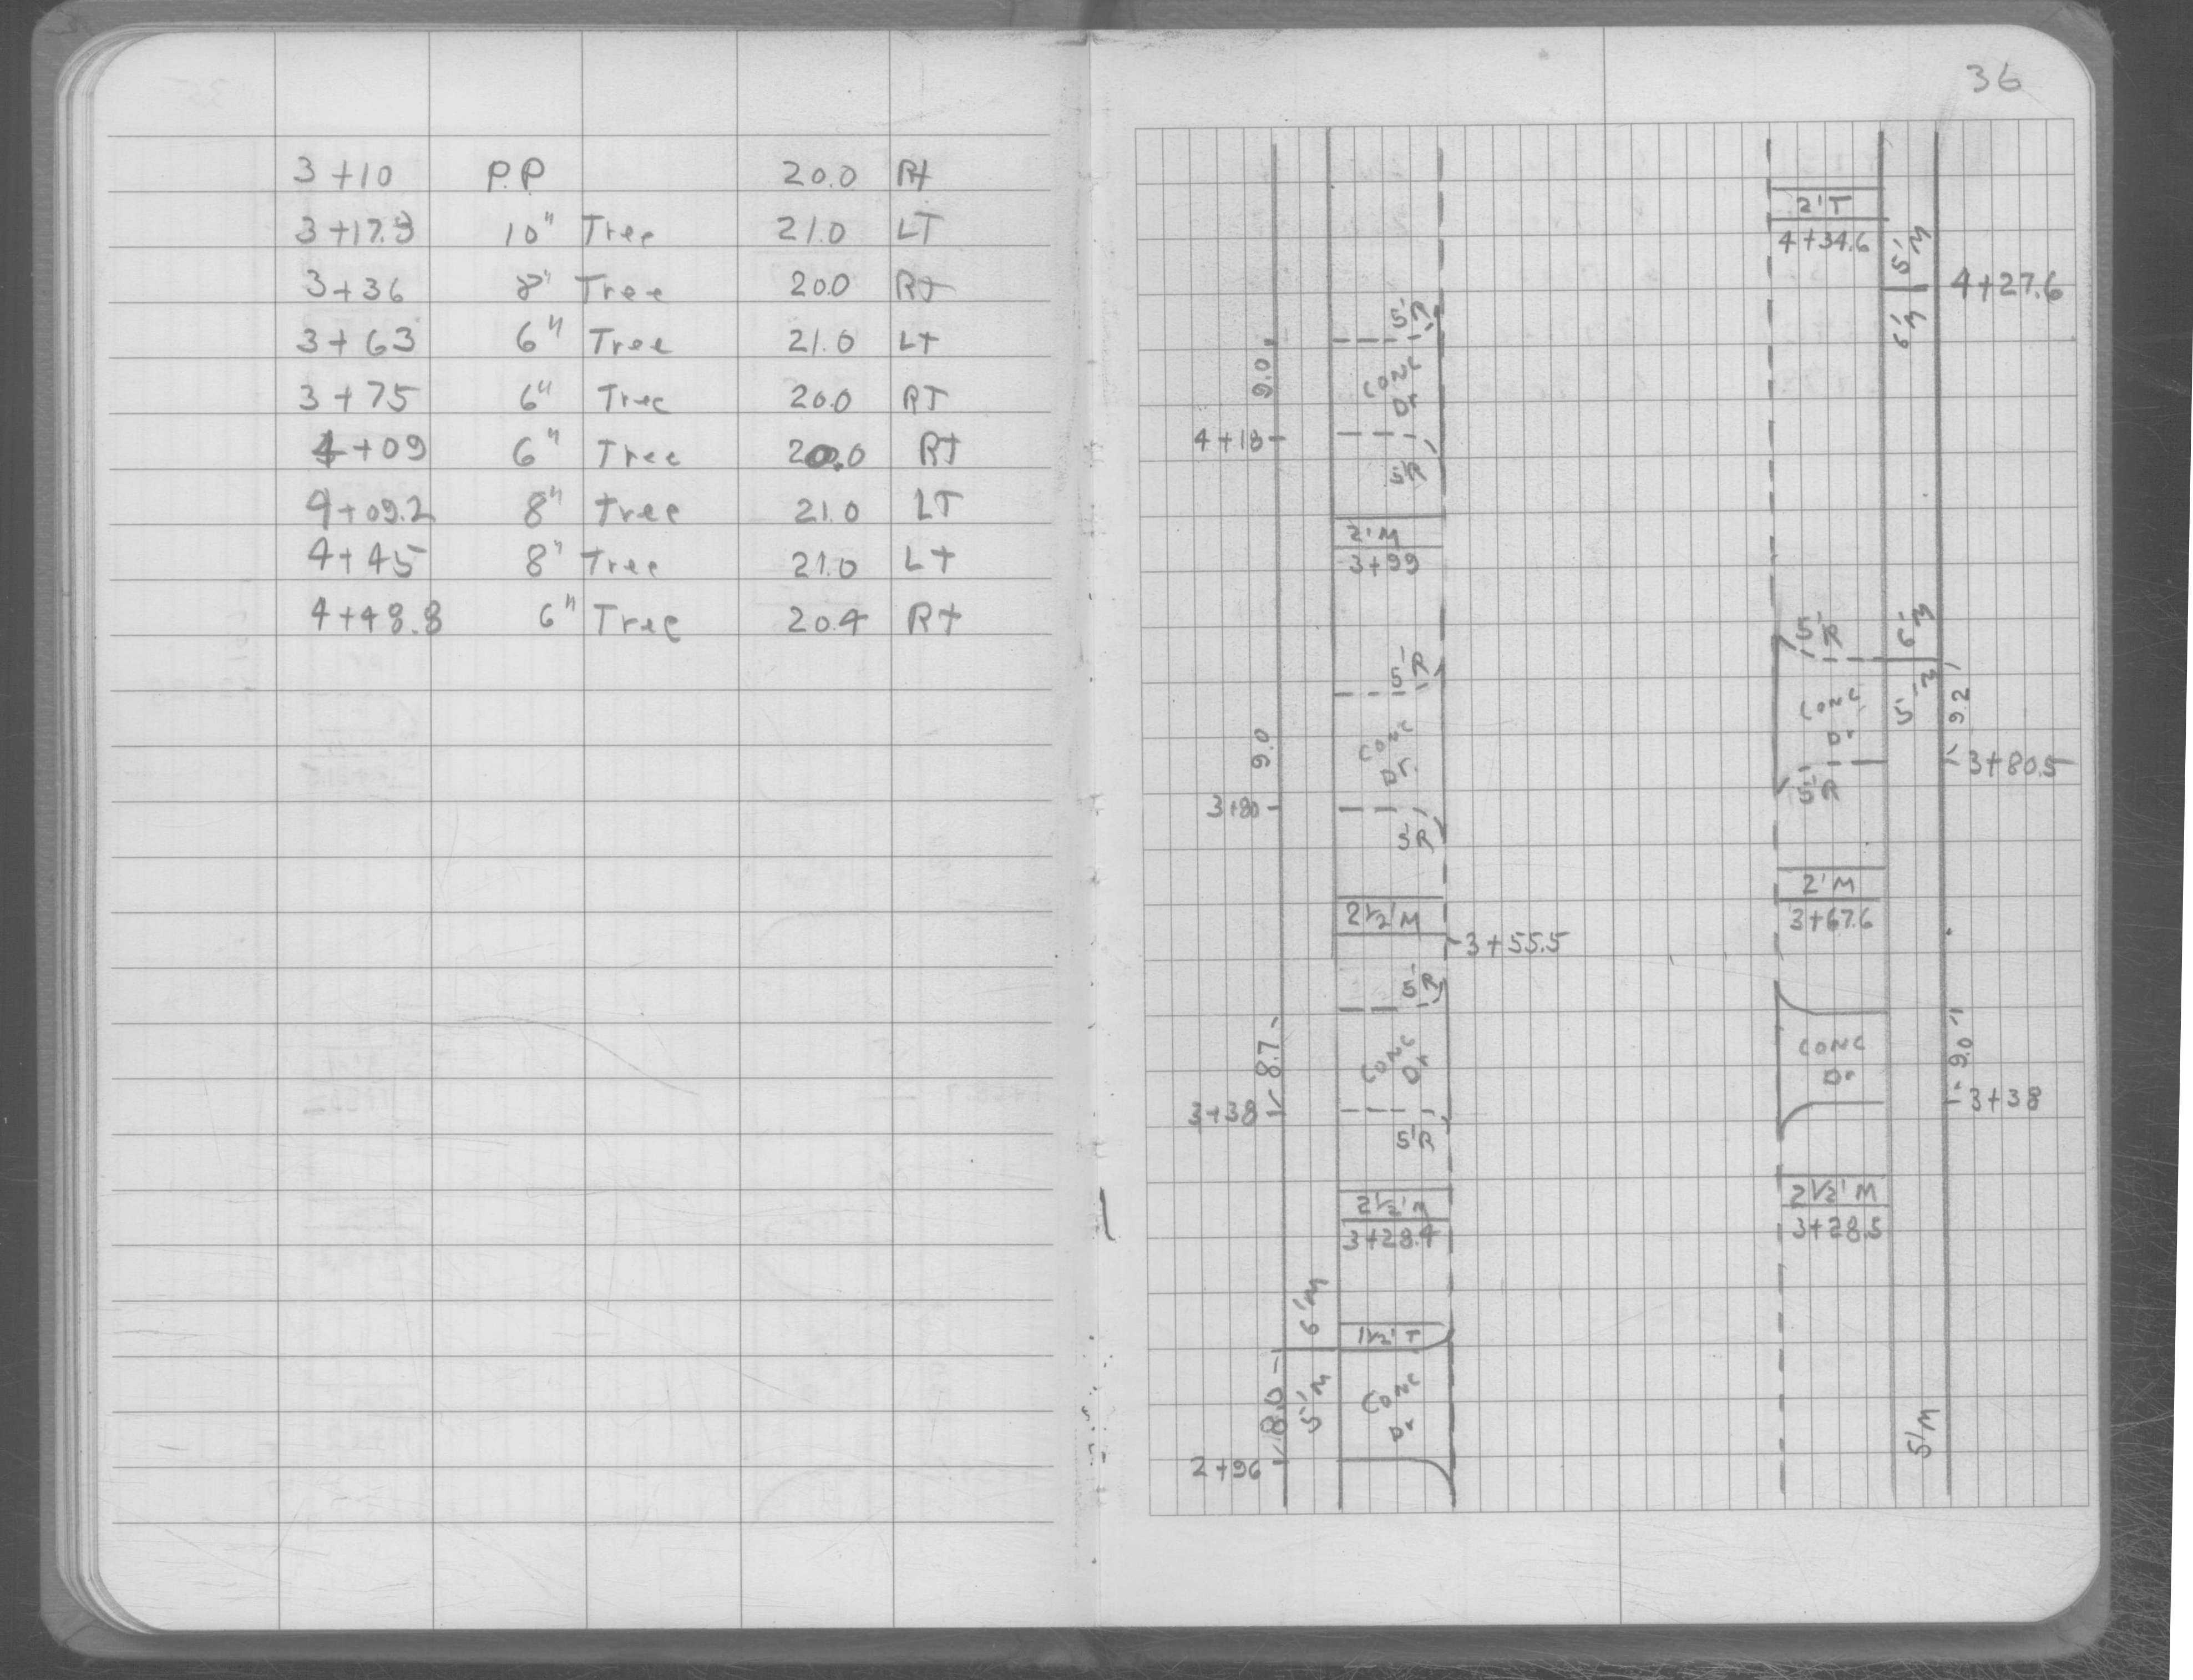 3+10 P.P 20.0 Rt
3+17.3 10" Tree 21.0 LT
3+36 8" Tree 20.0 Rt
3+63 6" Tree 21.0 Lt
3+75 6" Tree 20.0 RT
4+09 6" Tree 20.0 Rt
4+09.2 8" Tree 21.0 LT
4+45 8" Tree 21.0 Lt
4+48.8 6" Tree 20.4 Rt
36
2'T
4+34.6
5'M
4+27.6
6'M
5'R
9.0
CONC
Dr
4+18
5'R
2'M
3+99
5'R
9.0
CONC
Dr.
3+80
5'R
2½'M
3+55.5
5'R
8.7
CONC
Dr
3+38
5'R
2½'M
3+28.4
6'M
1½'T
8.0
5'M
CONC
Dr
2+96
5'R
6'M
CONC
Dr
5'M
9.2
3+80.5
5'R
2'M
3+67.6
CONC
Dr
9.0
3+38
2½'M
3+28.5
5'M